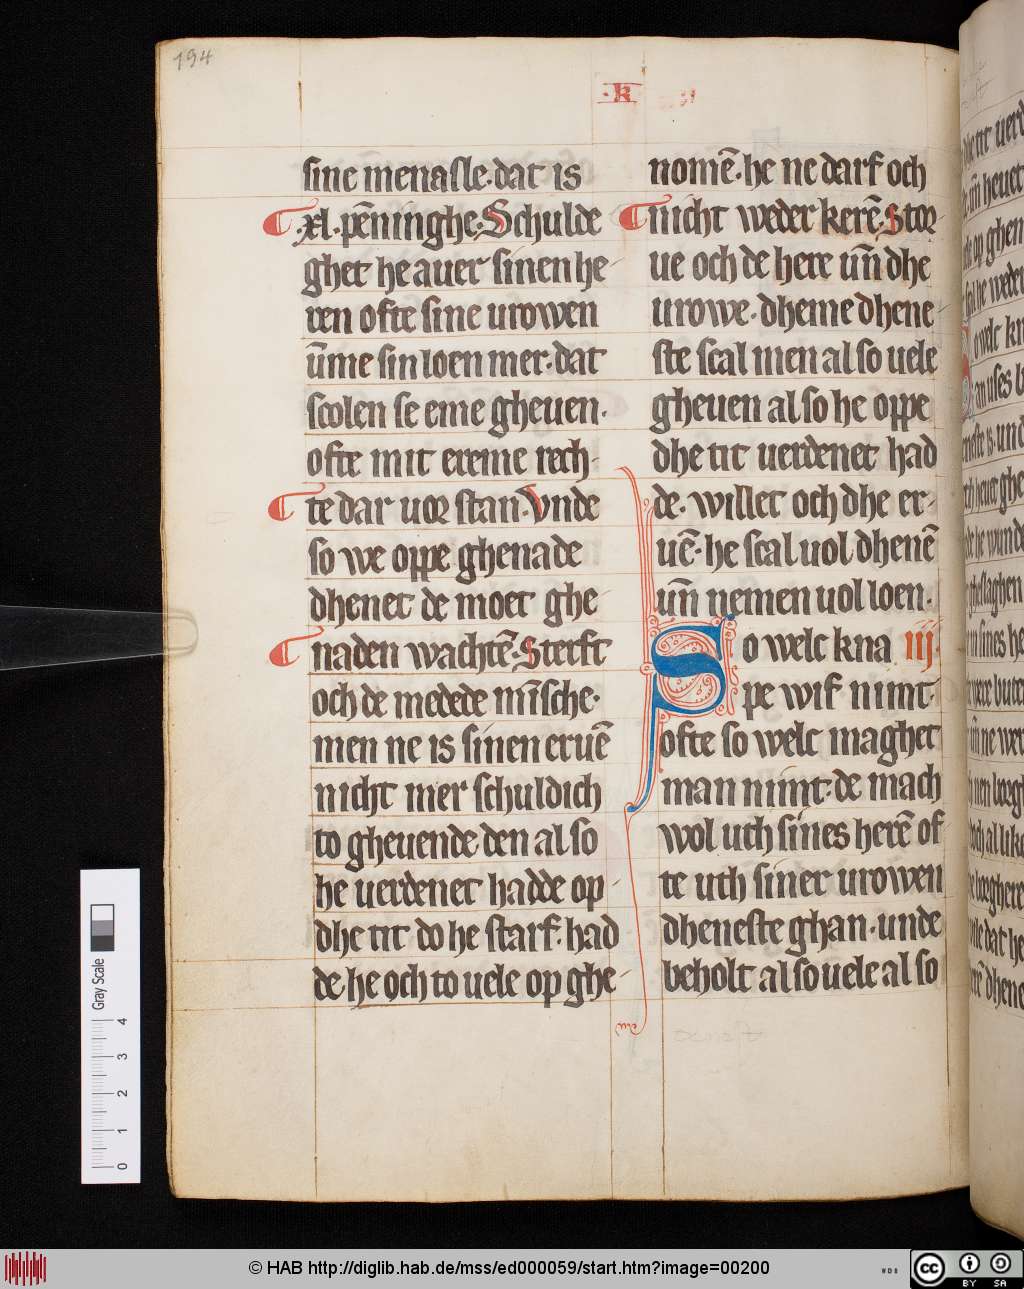 194
.k.
sine menasle·dat is
·xl·pēninghe·Schulde
ghet he auer sinen he
ren ofte sine urowen
ūme sin loen mer·dat
scolen se eme gheuen·
ofte mit ereme rech
te dar uor stan·Vnde
so we oppe ghenade
dhenet de moet ghe
naden wachtē·Sterft
och de medede mīsche·
men ne is sinen eruē
nicht mer schuldich
to gheuende·den al so
he uerdenet hadde op
dhe tit do he starf·had
de·he och to uele op ghe
nomē·he ne darf och
nicht weder kerē·Stor
ue och de here uñ dhe
urowe·dheme dhene
ste scal men al so uele
gheuen al so he oppe
dhe tit uerdenet had
de·willet och dhe er
uē·he scal uol dhenē
uñ nemen uol loen·
So welc kna iij·
pe wif nimt·
ofte so welc maghet
man nimt·de mach
wol uth sines herē of
te uth siner urowen
dheneste ghan·unde
beholt al so uele al so
Gray Scale
0 1 2 3 4
© HAB http://diglib.hab.de/mss/ed000059/start.htm?image=00200
cc BY SA